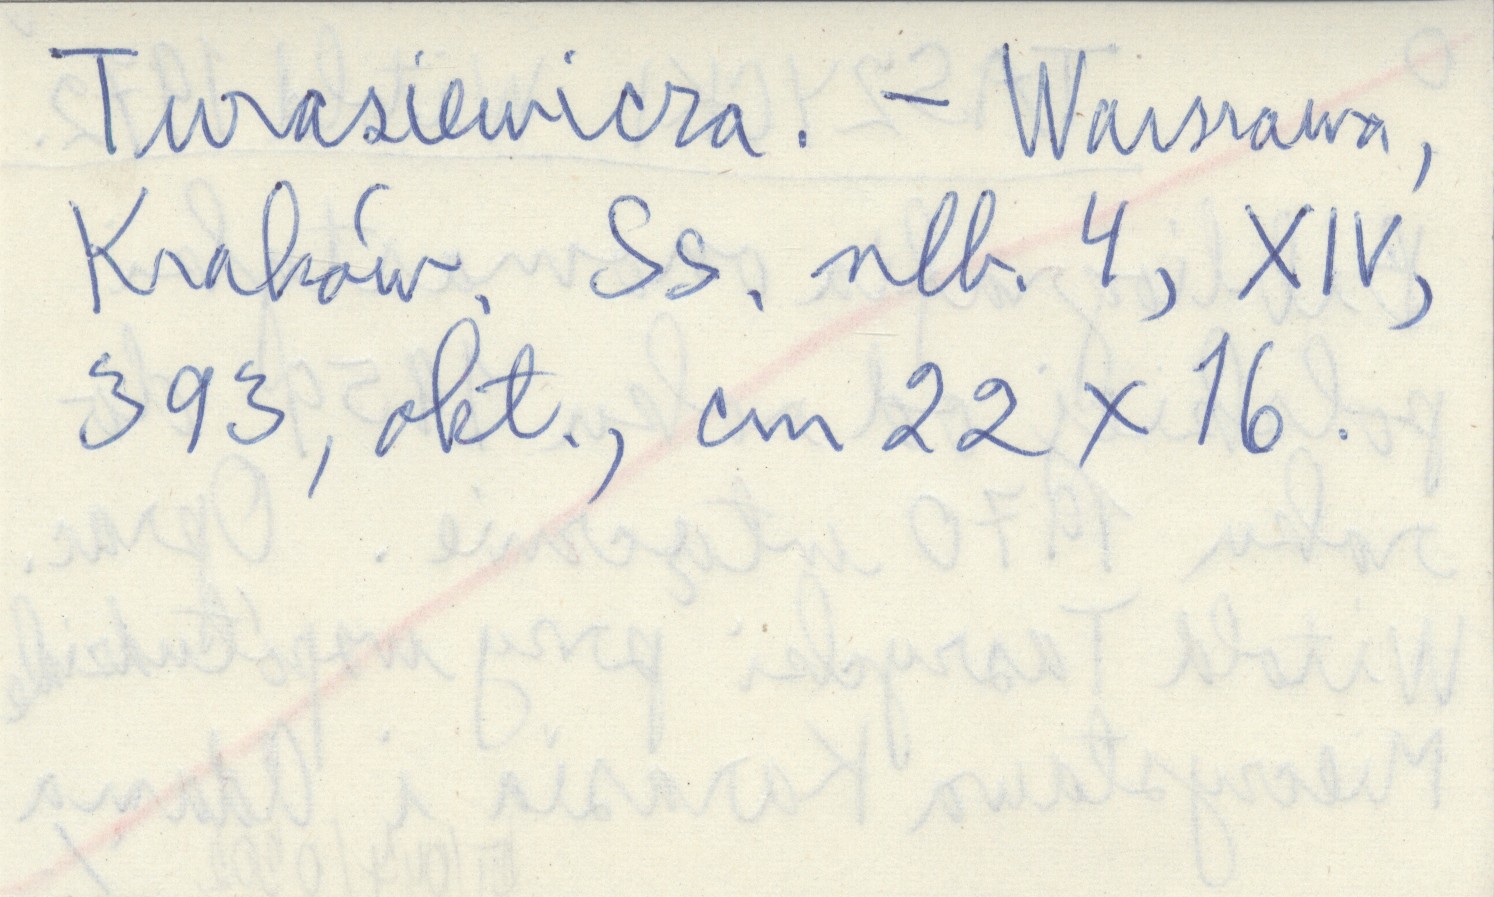 Turasiewicza. – Warszawa,
Kraków. Ss. nlb. 4, XIV,
393, okt., cm 22 x 16.